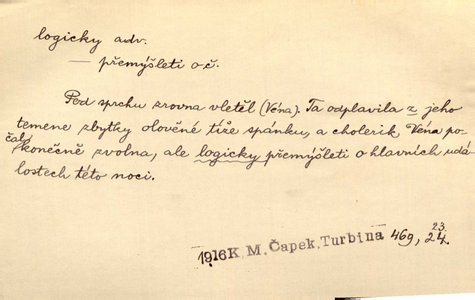 logicky adv.
— přemýšleti o č.
Pod sprchu zrovna vletěl (Véna). Ta odplavila z jeho
temene zbytky olověné tíže spánku, a cholerik Véna po-
čal konečně zvolna, ale logicky přemýšleti o hlavních udá-
lostech této noci.
1916 K. M. Čapek, Turbina 469, 23.
24.